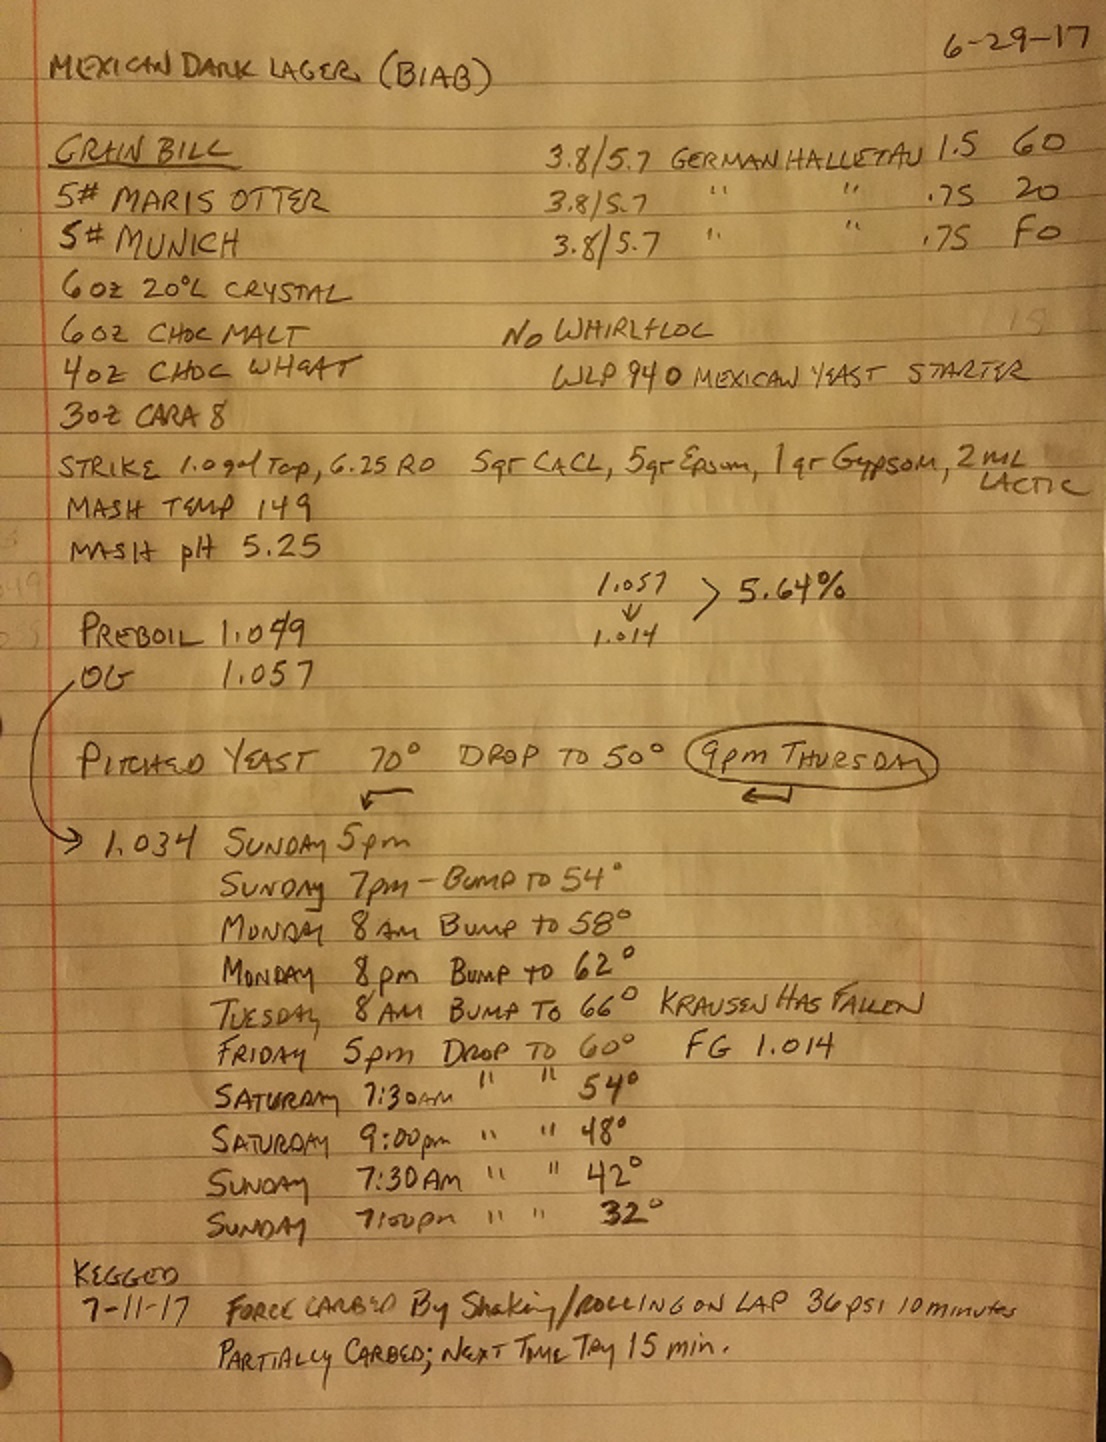 6-29-17
MEXICAN DARK LAGER (BIAB)
GRAIN BILL
5# MARIS OTTER
5# MUNICH
6oz 20°L CRYSTAL
6oz CHOC MALT
4oz CHOC WHEAT
3oz CARA 8
3.8/5.7 GERMAN HALLETAU 1.5 60
3.8/5.7 " " .75 20
3.8/5.7 " " .75 FO
No WHIRLFLOC
WLP 940 MEXICAN YEAST STARTER
STRIKE 1.0 gal Tap, 6.25 RO 5gr CACL, 5gr Epsom, 1gr Gypsom, 2 mL
LACTIC
MASH TEMP 149
MASH pH 5.25
1.057
↓
1.014
> 5.64%
PREBOIL 1.049
OG 1.057
PITCHED YEAST 70° DROP TO 50° 9pm THURSDAY
1.034 SUNDAY 5pm
SUNDAY 7pm - BUMP TO 54°
MONDAY 8AM BUMP to 58°
MONDAY 8pm BUMP to 62°
TUESDAY 8AM BUMP TO 66° KRAUSEN HAS FALLEN
FRIDAY 5pm DROP TO 60° FG 1.014
SATURDAY 7:30AM " " 54°
SATURDAY 9:00pm " " 48°
SUNDAY 7:30AM " " 42°
SUNDAY 7:00pm " " 32°
KEGGED
7-11-17 FORCE CARBED By Shaking/ROLLING ON LAP 36psi 10 minutes
PARTIALLY CARBED; NEXT TIME TRY 15 min.